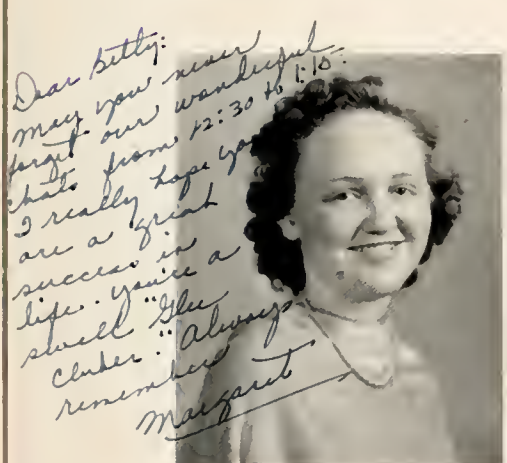 Dear Betty:
May you never
forget our wonderful
chats from 12:30 to 1:10.
I really hope you
are a great
success in
life. You're a
swell "Glee
Clubber." Always
remember
Margaret